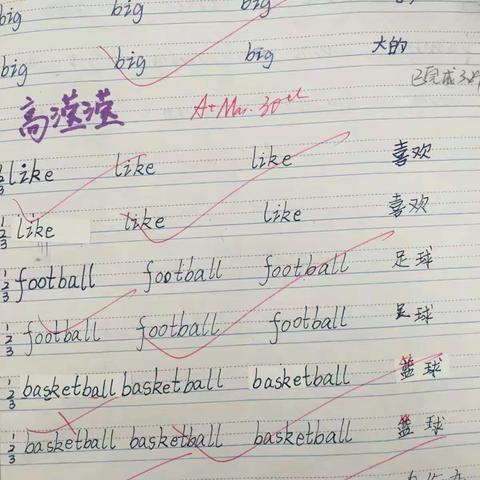 big big big
big big big 大的
已完成
高滢滢 A+ Mar. 30th
1 2 3 like like like 喜欢
1 2 3 like like like 喜欢
1 2 3 football football football 足球
1 2 3 football football football 足球
1 2 3 basketball basketball basketball 篮球
1 2 3 basketball basketball basketball 篮球